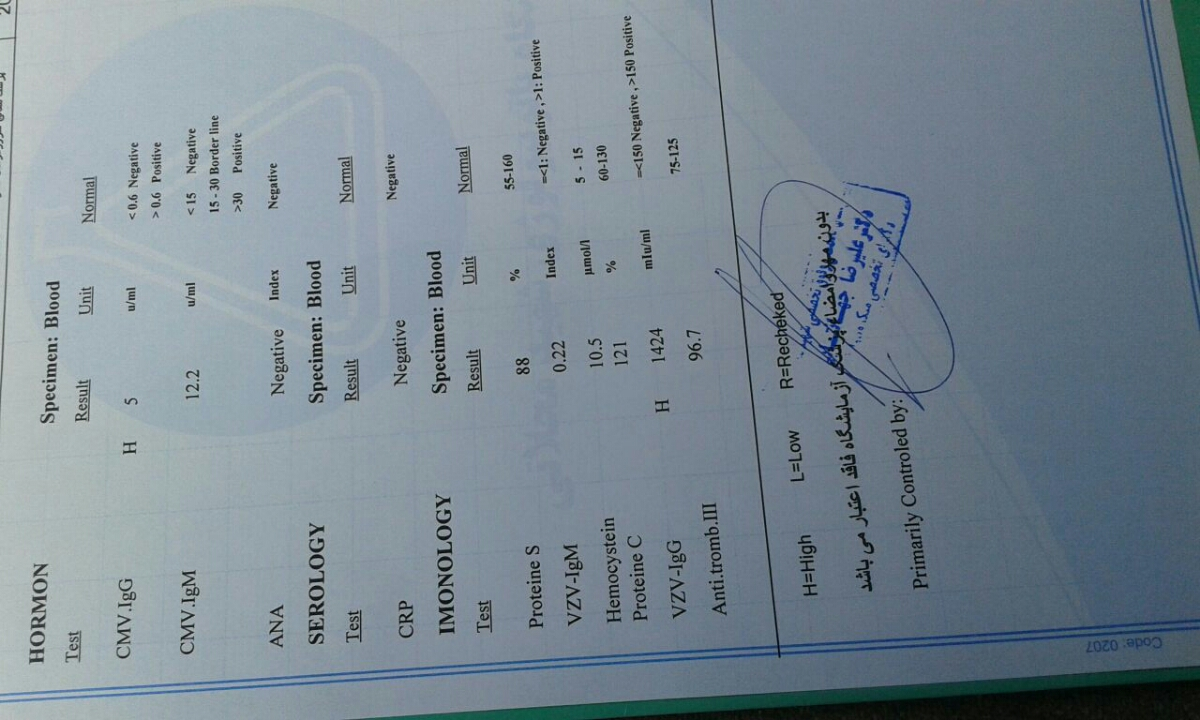 HORMON Specimen: Blood
Test Result Unit Normal
CMV.IgG H 5 u/ml < 0.6 Negative
> 0.6 Positive
CMV.IgM 12.2 u/ml < 15 Negative
15 - 30 Border line
>30 Positive
ANA Negative Index Negative
SEROLOGY Specimen: Blood
Test Result Unit Normal
CRP Negative Negative
IMONOLOGY Specimen: Blood
Test Result Unit Normal
Proteine S 88 % 55-160
VZV-IgM 0.22 Index =<1: Negative , >1: Positive
Hemocystein 10.5 µmol/l 5 - 15
Proteine C 121 % 60-130
VZV-IgG H 1424 mIu/ml =<150 Negative , >150 Positive
Anti.tromb.III 96.7 75-125
H=High L=Low R=Recheked
بدون مهر و امضاء آزمایشگاه فاقد اعتبار می باشد
Primarily Controled by:
دکتر علیرضا
دکترای تخصصی
Code: 0207